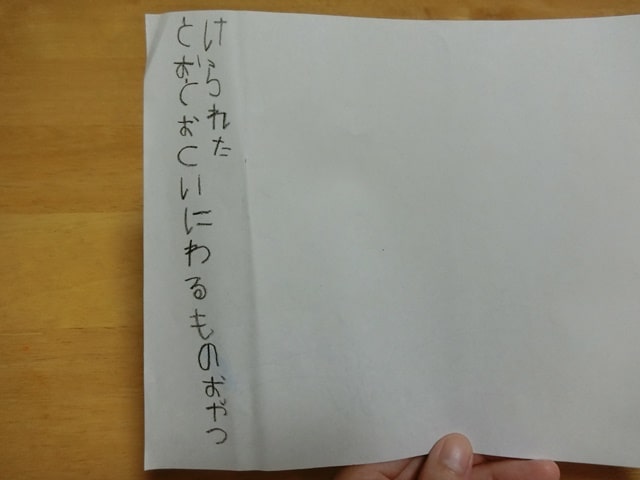 とおくおくいにわるものおやつ
けられた